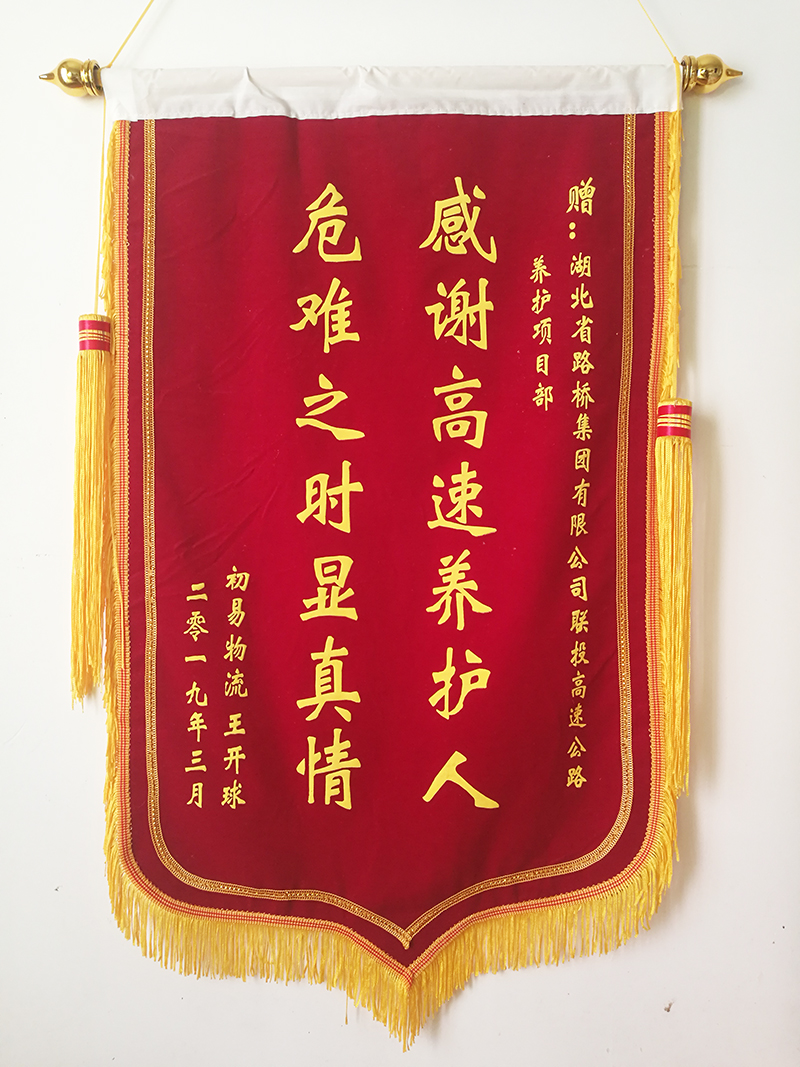 赠：湖北省路桥集团有限公司联投高速公路
养护项目部
感谢高速养护人
危难之时显真情
初易物流 王开球
二零一九年三月